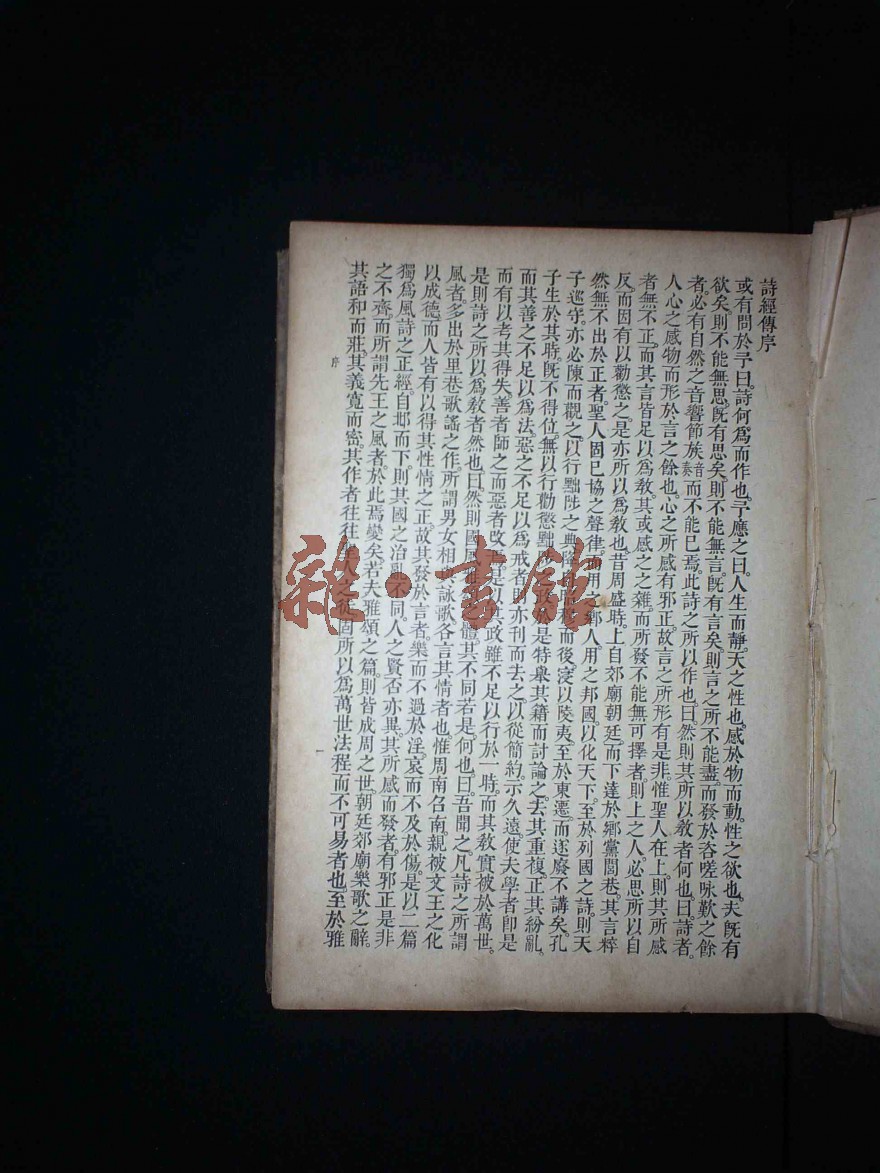 詩經傳序
或有問於予曰。詩何爲而作也。予應之曰。人生而靜。天之性也。感於物而動。性之欲也。夫旣有
欲矣。則不能無思。旣有思矣。則不能無言。旣有言矣。則言之所不能盡。而發於咨嗟咏歎之餘
者。必有自然之音響節族音奏而不能已焉。此詩之所以作也。曰。然則其所以敎者何也。曰。詩者。
人心之感物而形於言之餘也。心之所感有邪正。故言之所形有是非。惟聖人在上。則其所感
者無不正。而其言皆足以爲敎。其或感之之雜。而所發不能無可擇者。則上之人。必思所以自
反。而因有以勸懲之。是亦所以爲敎也。昔周盛時。上自郊廟朝廷。而下達於鄉黨閭巷。其言粹
然無不出於正者。聖人固已協之聲律。而用之鄉人。用之邦國。以化天下。至於列國之詩。則天
子巡守。亦必陳而觀之。以行黜陟之典。降而後。寖以陵夷。至於東遷。而遂廢不講矣。孔
子生於其時。旣不得位。無以行勸懲黜於是特舉其籍而討論之。去其重複。正其紛亂。
而其善之不足以爲法。惡之不足以爲戒者。則亦刊而去之。以從簡約。示久遠。使夫學者卽是
而有以考其得失。善者師之。而惡者改是以其政雖不足以行於一時。而其敎實被於萬世。
是則詩之所以爲敎者然也。曰。然則國風體。其不同若是。何也。曰。吾聞之。凡詩之所謂
風者。多出於里巷歌謠之作。所謂男女相與詠歌。各言其情者也。惟周南召南。親被文王之化
以成德。而人皆有以得其性情之正。故其發於言者。樂而不過於淫。哀而不及於傷。是以二篇
獨爲風詩之正經。自邶而下。則其國之治亂不同。人之賢否亦異。其所感而發者。有邪正是非
之不齊。而所謂先王之風者。於此焉變矣。若夫雅頌之篇。則皆成周之世。朝廷郊廟樂歌之辭。
其語和而莊。其義寬而密。其作者往往聖人之徒。固所以爲萬世法程而不可易者也。至於雅
序
一
雜·書館